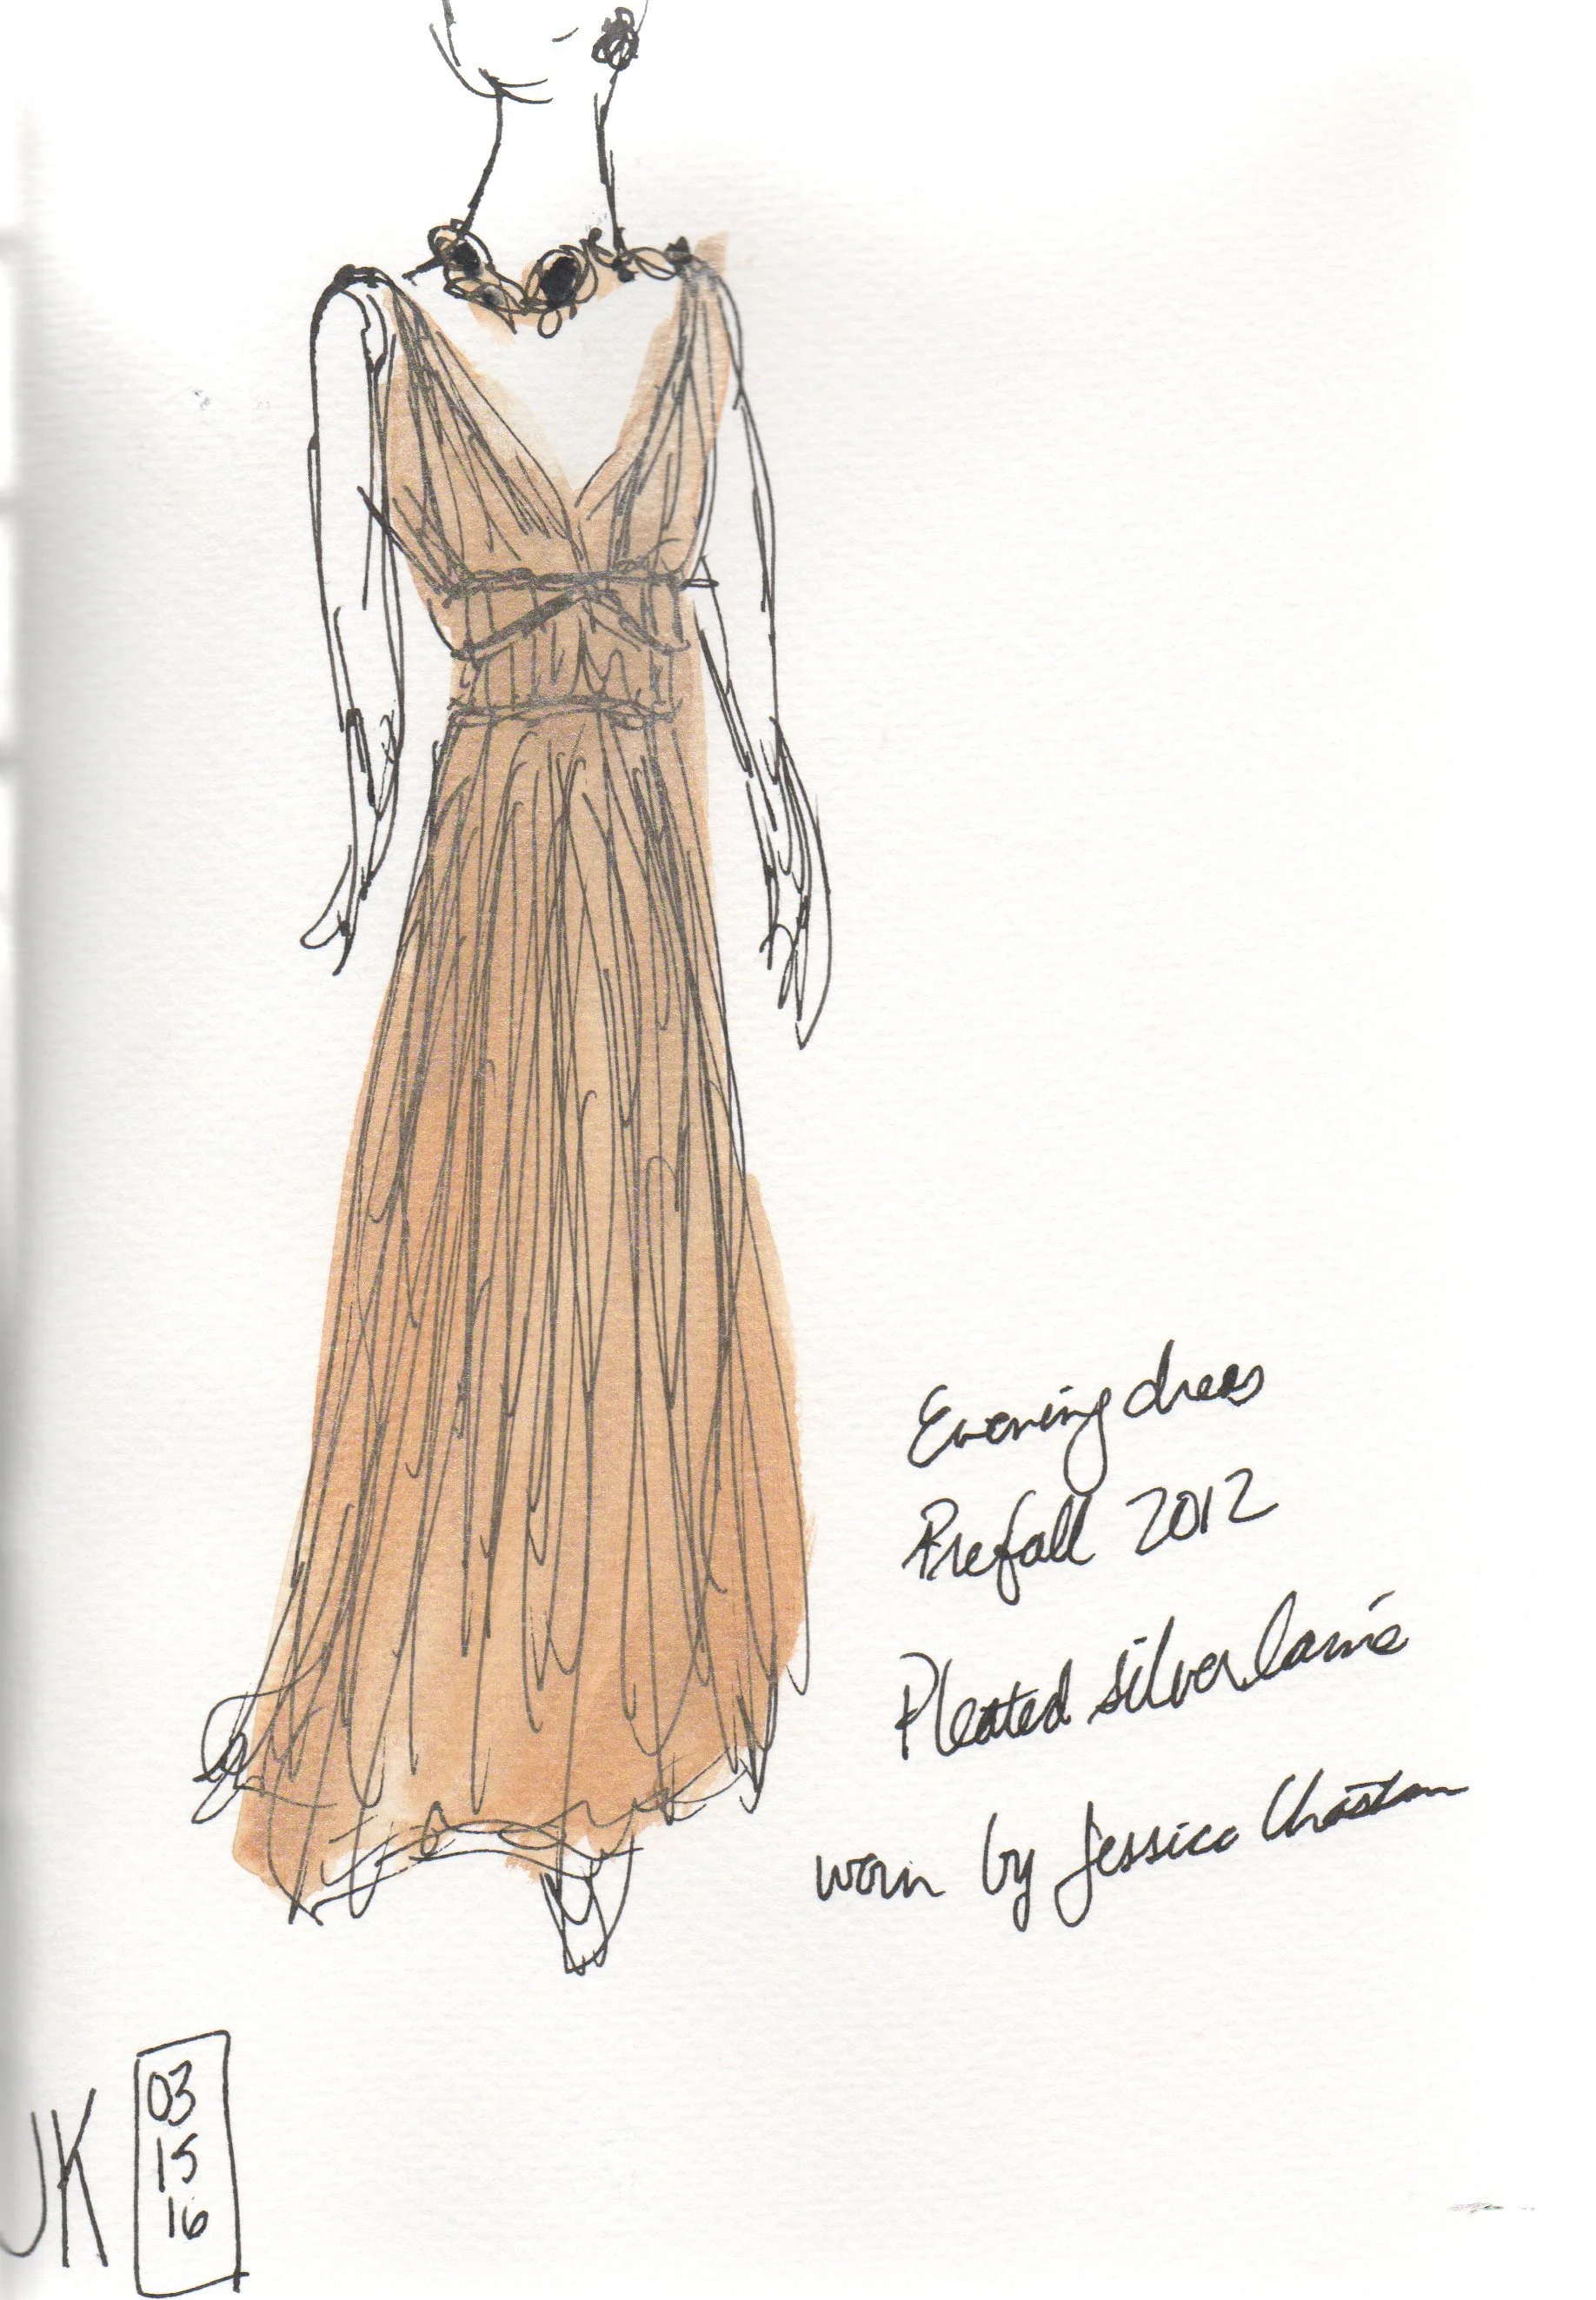 Evening dress
Prefall 2012
Pleated silver lamé
worn by Jessica Chastain
JK
03
15
16